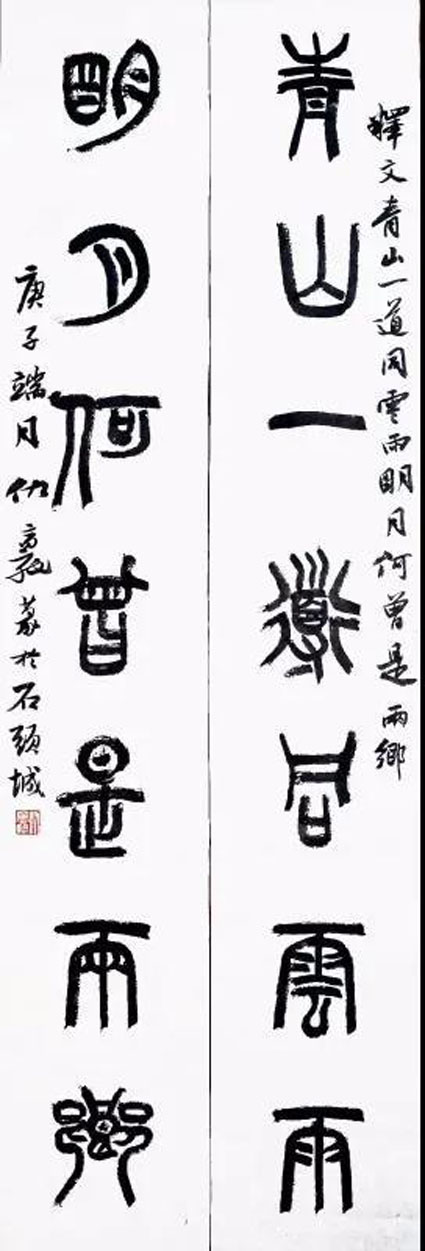 釋文青山一道同雲雨明月何曾是兩鄉
青山一道同雲雨
明月何曾是兩鄉
庚子端月 篆於石頭城